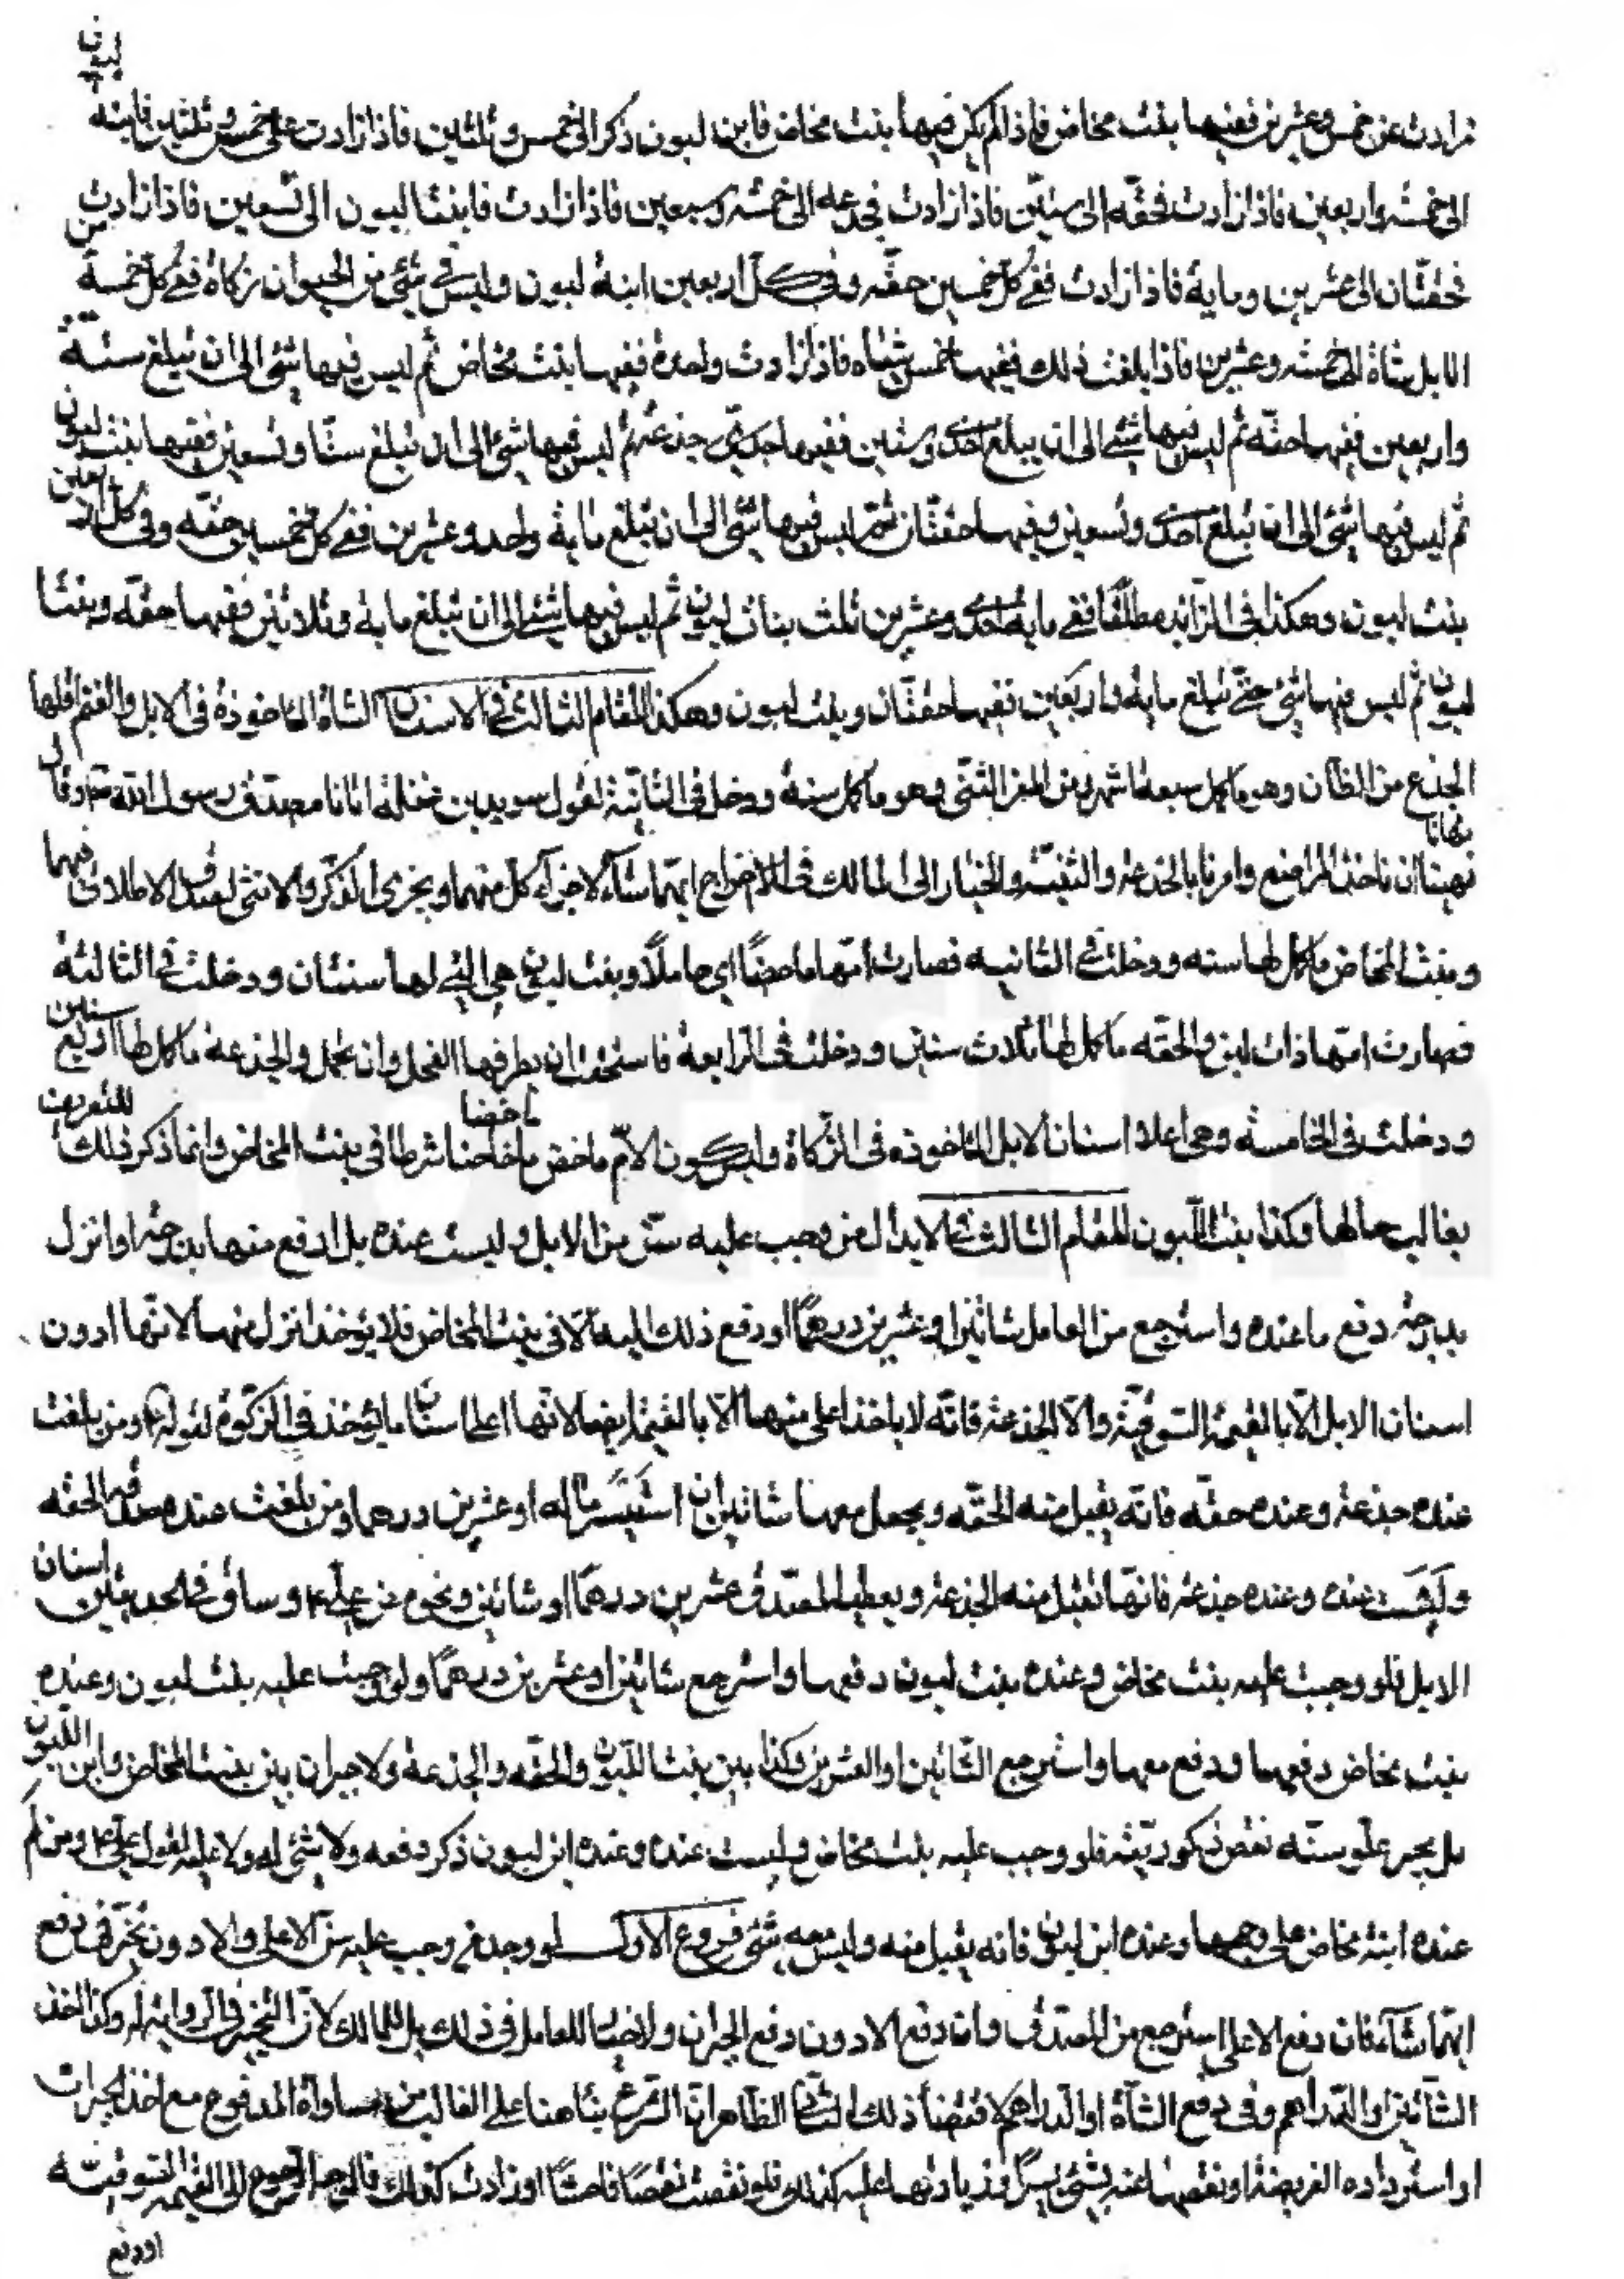 زادت عن خمس وعشرين ففيها بنت مخاض فاذا لم يكن فيها بنت مخاض فابن لبون ذكر الى خمس وثلثين فاذا زادت على خمس وثلثين فابنة لبون
الى خمسة واربعين فاذا زادت فحقّه الى ستين فاذا زادت فجدعه الى خمسة وسبعين فاذا زادت فابنتا لبون الى تسعين فاذا زادت
فحقّتان الى عشرين ومايه فاذا زادت ففي كل خمسين حقّه وفي كل اربعين ابنة لبون وليس في شئ من الحيوان زكاة ففي كل خمسة من
الابل شاة الى خمسه وعشرين فاذا بلغت ذلك ففيها خمس شياه فاذا زادت واحدة ففيها بنت مخاض ثم ليس فيها شئ الى ان تبلغ ستة
واربعين ففيها حقّه ثم ليس فيها شئ الى ان يبلغ احدى وستين ففيها جذعه ثم ليس فيها شئ الى ان تبلغ ستّا وتسعين ففيها بنت لبون
ثم ليس فيها شئ الى ان تبلغ احدى وتسعين وفيها حقتّان ثمّ ليس فيها شئ الى ان تبلغ مايه واحد وعشرين ففي كل خمسين حقّه وفي كل اربعين
بنت لبون وهكذا في الزايد مطلقًا ففي مايه احدى وعشرين ثلث بنات لبون ثم ليس فيها شئ الى ان تبلغ مايه وثلاثين ففيها حقّه وبنتا
لبون ثم ليس فيها شئ حتّى تبلغ مايه واربعين ففيها حقتّان وبنت لبون وهكذا المقام الثالث في الاسنان الشاة الماخوذة في الابل والغنم اقلها
الجذع من الضان وهو ما كمل سبعة اشهر ومن المعز الثنىّ وهو ما كمل سنه ودخل في الثانية لقول سويد بن غفلة اتانا مصدق رسول الله ص وقال
نهينا ان ناخذ المراضع وامرنا بالجذعة والثنيّة والخيار الى المالك في الاخراج ايّهما شاء لاجزاء كل منهما ويجزى الذكر والانثى لعدم الاطلاق فيهما
وبنت المخاض ما كمل لها سنه ودخلت في الثانيه فصارت امّها ماخضًا اى حاملًا وبنت لبون هى التي لها سنتان ودخلت في الثالثة
فصارت امّها ذات لبن والحقّه ما كمل لها ثلاث سنين ودخلت في الرابعة فاستحقت ان يطرقها الفحل وان تحمل والجذعة ما كمل لها اربع سنين
ودخلت في الخامسة وهى اعلا اسنان الابل الماخوذه في الزكاة وليس كون الامّ ماخض ماخضا شرطا في بنت المخاض وانما ذكر ذلك للتعريف
بغالب حالها وكذا بنت اللّبون المقام الثالث في الابدال من وجب عليه سنّ من الابل وليست عنده بل ارفع منها بدرجة او انزل
بدرجة دفع ما عنده واسترجع من العامل شاتين او عشرين درهمًا او دفع ذلك اليه الّا في بنت المخاض فلا يؤخذ انزل منها لانّها ادون
اسنان الابل الّا بالقيمة السوقيّة والّا الجذعة فانّه لا ياخذ اعلى منها الّا بالقيمة ايضا لانّها اعلى اسنان ما يؤخذ في الزكوة لقوله ع ومن بلغت
عنده جذعة وعنده حقه فانّه يقبل منه الحقّه ويجعل معها شاتين ان استيسر ماله او عشرين درهما ومن بلغت عنده صدقة الحقه
وليست عنده وعنده جذعة فانّها تقبل منه الجذعة ويعطيه المصدّق عشرين درهمًا او شاتين ونحوه عن على ع وساق في الحديثين اسنان
الابل فلو وجبت عليه بنت مخاض وعنده بنت لبون دفعها واسترجع شاتين او عشرين درهمًا ولو وجبت عليه بنت لبون وعنده
بنت مخاض دفعها ودفع معها واسترجع الشّاتين او العشرين وكذا بين بنت اللّبون والحقّه والجذعة ولا جبران بين بنت المخاض وابن اللّبون
بل يجبر علو سنّه نقص ذكوريّته فلو وجب عليه بنت مخاض وليست عنده وعنده ابن لبون ذكر دفعه ولا شئ له ولا عليه لقول على ع ومن لم
عنده ابنة مخاض على وجهها وعنده ابن لبون فانه يقبل منه وليس معه شئ فروع الاول لو وجد من وجب عليه سنّ الاعلى والادون تخيّر في دفع
ايّهما شاء فان دفع الاعلى استرجع من المصدّق وان دفع الادون دفع الجبران ولا خيار للعامل في ذلك بل للمالك لانّ التخيير في الرواية له وكذا اخذ
الشّاتين او الدّراهم وفي دفع الشّاة او الدّراهم لاقتضاء ذلك الثانى الظّاهر انّ الشّرع بناء هنا على الغالب من مساواة المدفوع مع اخذ الجبران
او استرداده الفريضة او نقصها عنه بشئ يسير او زيادتها عليه كذلك فلو نقصت نقصًا فاحشًا او زادت كذلك فالوجه الرجوع الى القيمه السوقيّه
اودفع